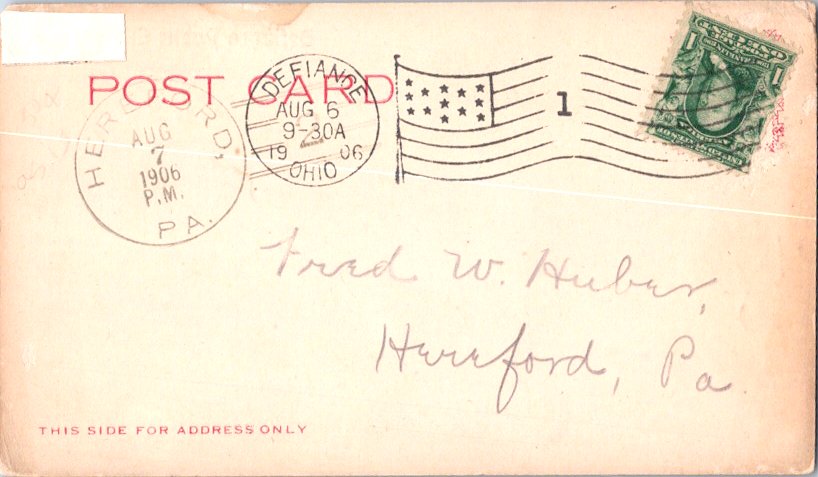 POST CARD
HEREFORD,
AUG
7
1906
P.M.
PA.
DEFIANCE
AUG 6
9-30A
19 06
OHIO
1
1 1
Fred W. Huber,
Hereford, Pa.
THIS SIDE FOR ADDRESS ONLY